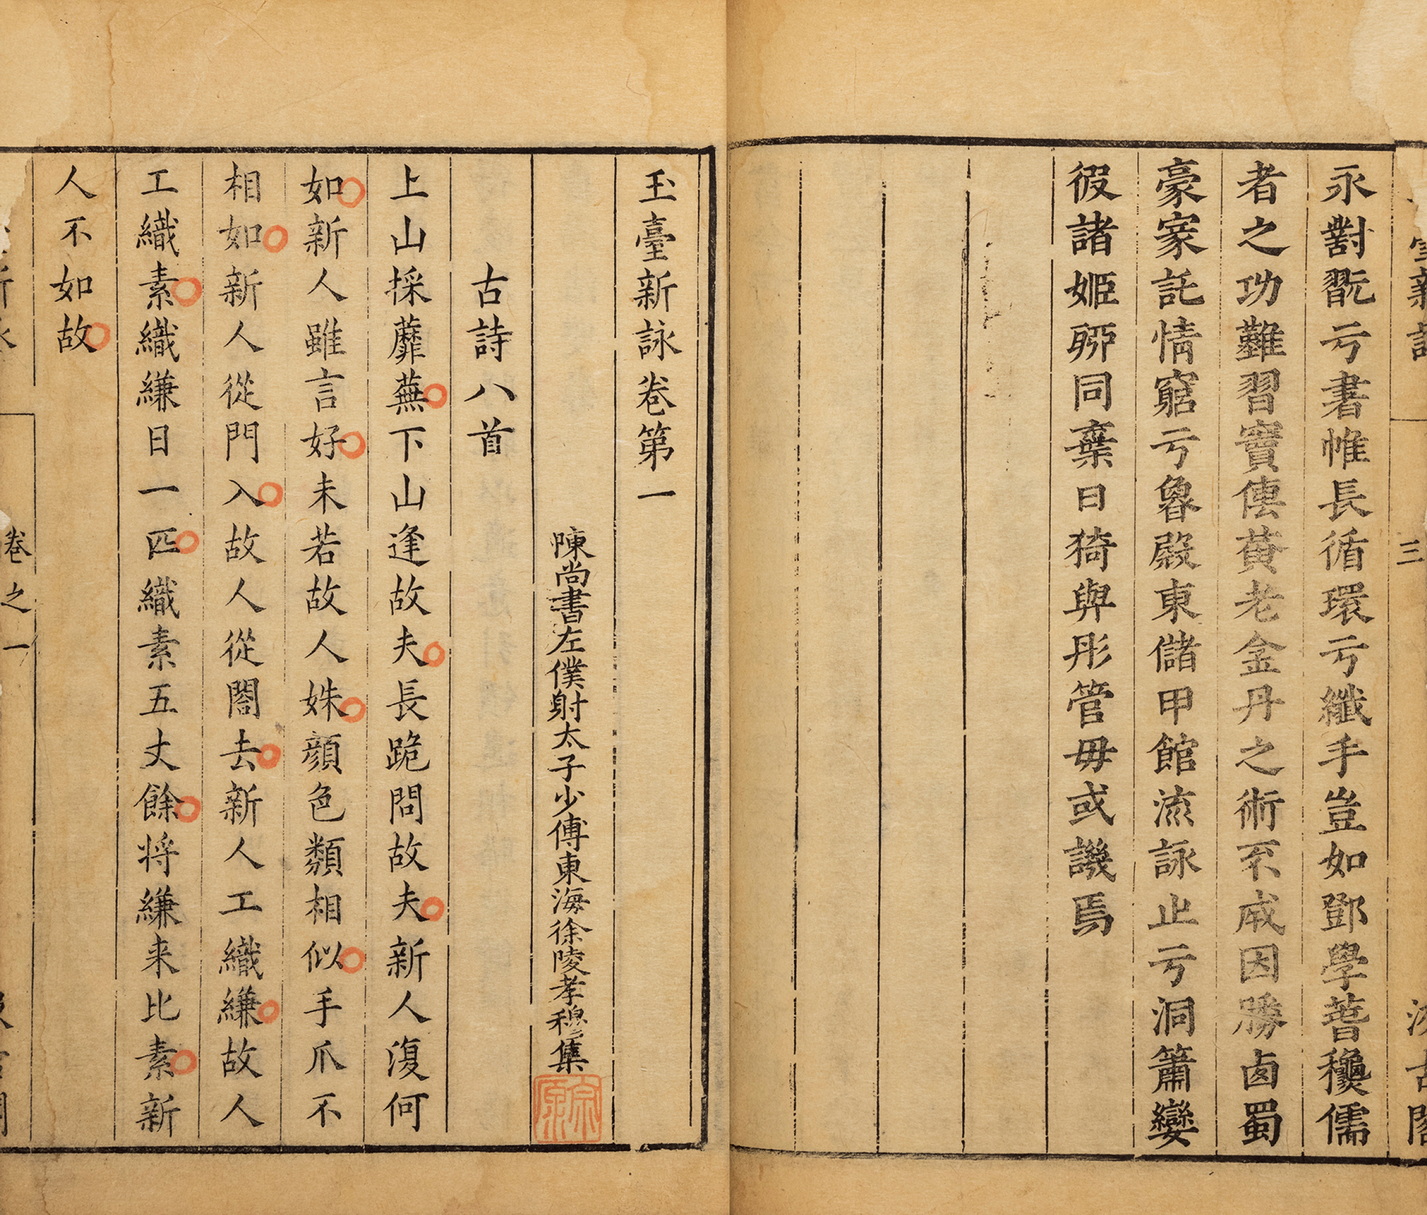 永對翫亏書帷長循環亏纖手豈如鄧學萅穐儒
者之功難習竇傳黃老金丹之術不成因勝鹵蜀
豪家託情窮亏魯殿東儲甲館流詠止亏洞簫孌
彼諸姬聊同棄日猗與彤管毋或譏焉
三
玉臺新詠卷第一
陳尚書左僕射太子少傅東海徐陵孝穆集
古詩八首
上山採蘼蕪下山逢故夫長跪問故夫新人復何
如新人雖言好未若故人姝顏色類相似手爪不
相如新人從門入故人從閤去新人工織縑故人
工織素織縑日一匹織素五丈餘將縑来比素新
人不如故
卷之一